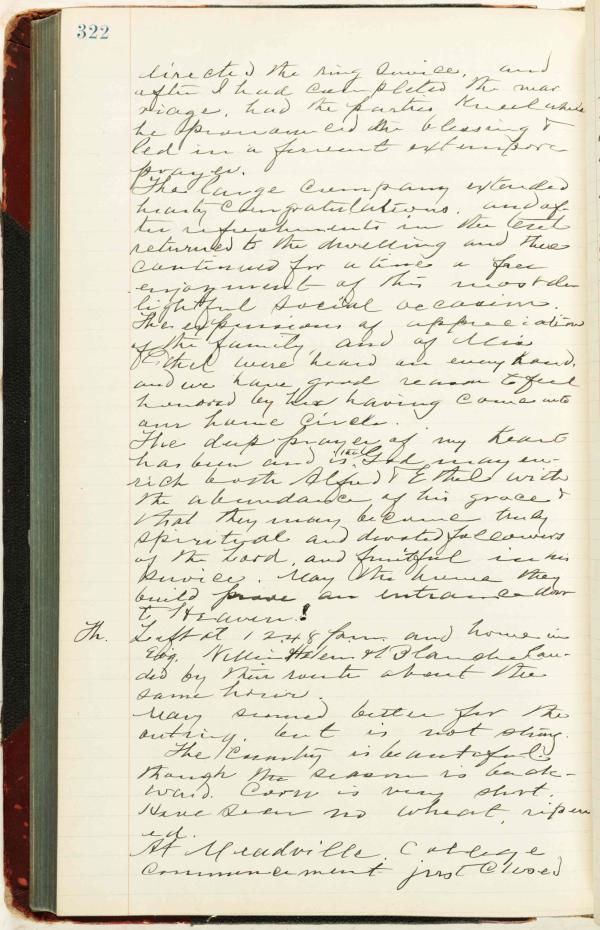 322
directed the ring service, and
after I had completed the mar
riage, had the parties kneel while
he pronounced the blessing &
led in a fervent extempore
prayer.
The large company extended
hearty congratulations. and af
ter refreshments in the tent
returned to the dwelling and there
continued for a time a free
enjoyment of this most de
lightful social occasion.
The expressions of appreciation
of the family and of Miss
Ethel were heard on every hand.
and we have good reason to feel
honored by her having come into
our home circle.
The deep prayer of my heart
has been and is, that God may en-
rich both Alfred & Ethel with
the abundance of his grace &
that they may become truly
spiritual and devoted followers
of the Lord, and fruitful in his
service. May the home they
build prove an entrance door
to Heaven!
Th. Left at 12.48 pm. and home in
evg. Nellie Helen & Blanche lan-
ded by their route about the
same hour.
Mary seemed better for the
outing, but is not strong.
The country is beautiful
though the season is back-
ward. Corn is very short.
Have seen no wheat ripen
ed.
At Meadville, College
commencement just closed